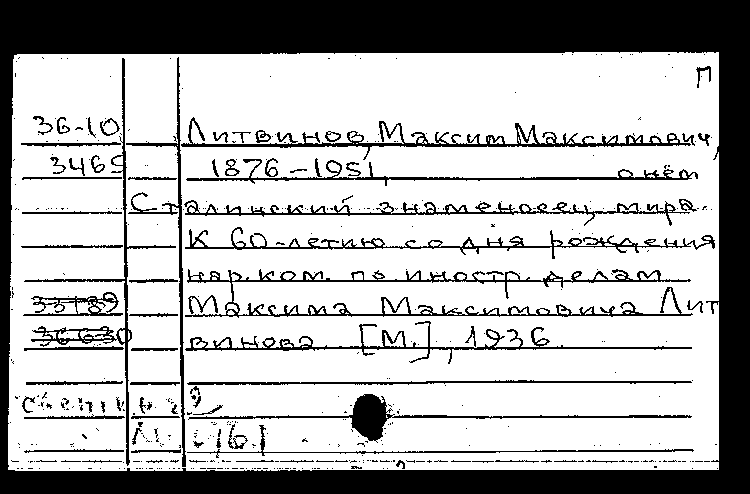 П
36-10 Литвинов, Максим Максимович,
3465 1876-1951, о нём
Сталинский знаменосец мира.
К 60-летию со дня рождения
нар. ком. по иностр. делам
33189 Максима Максимовича Лит
36630 винова. [М.], 1936